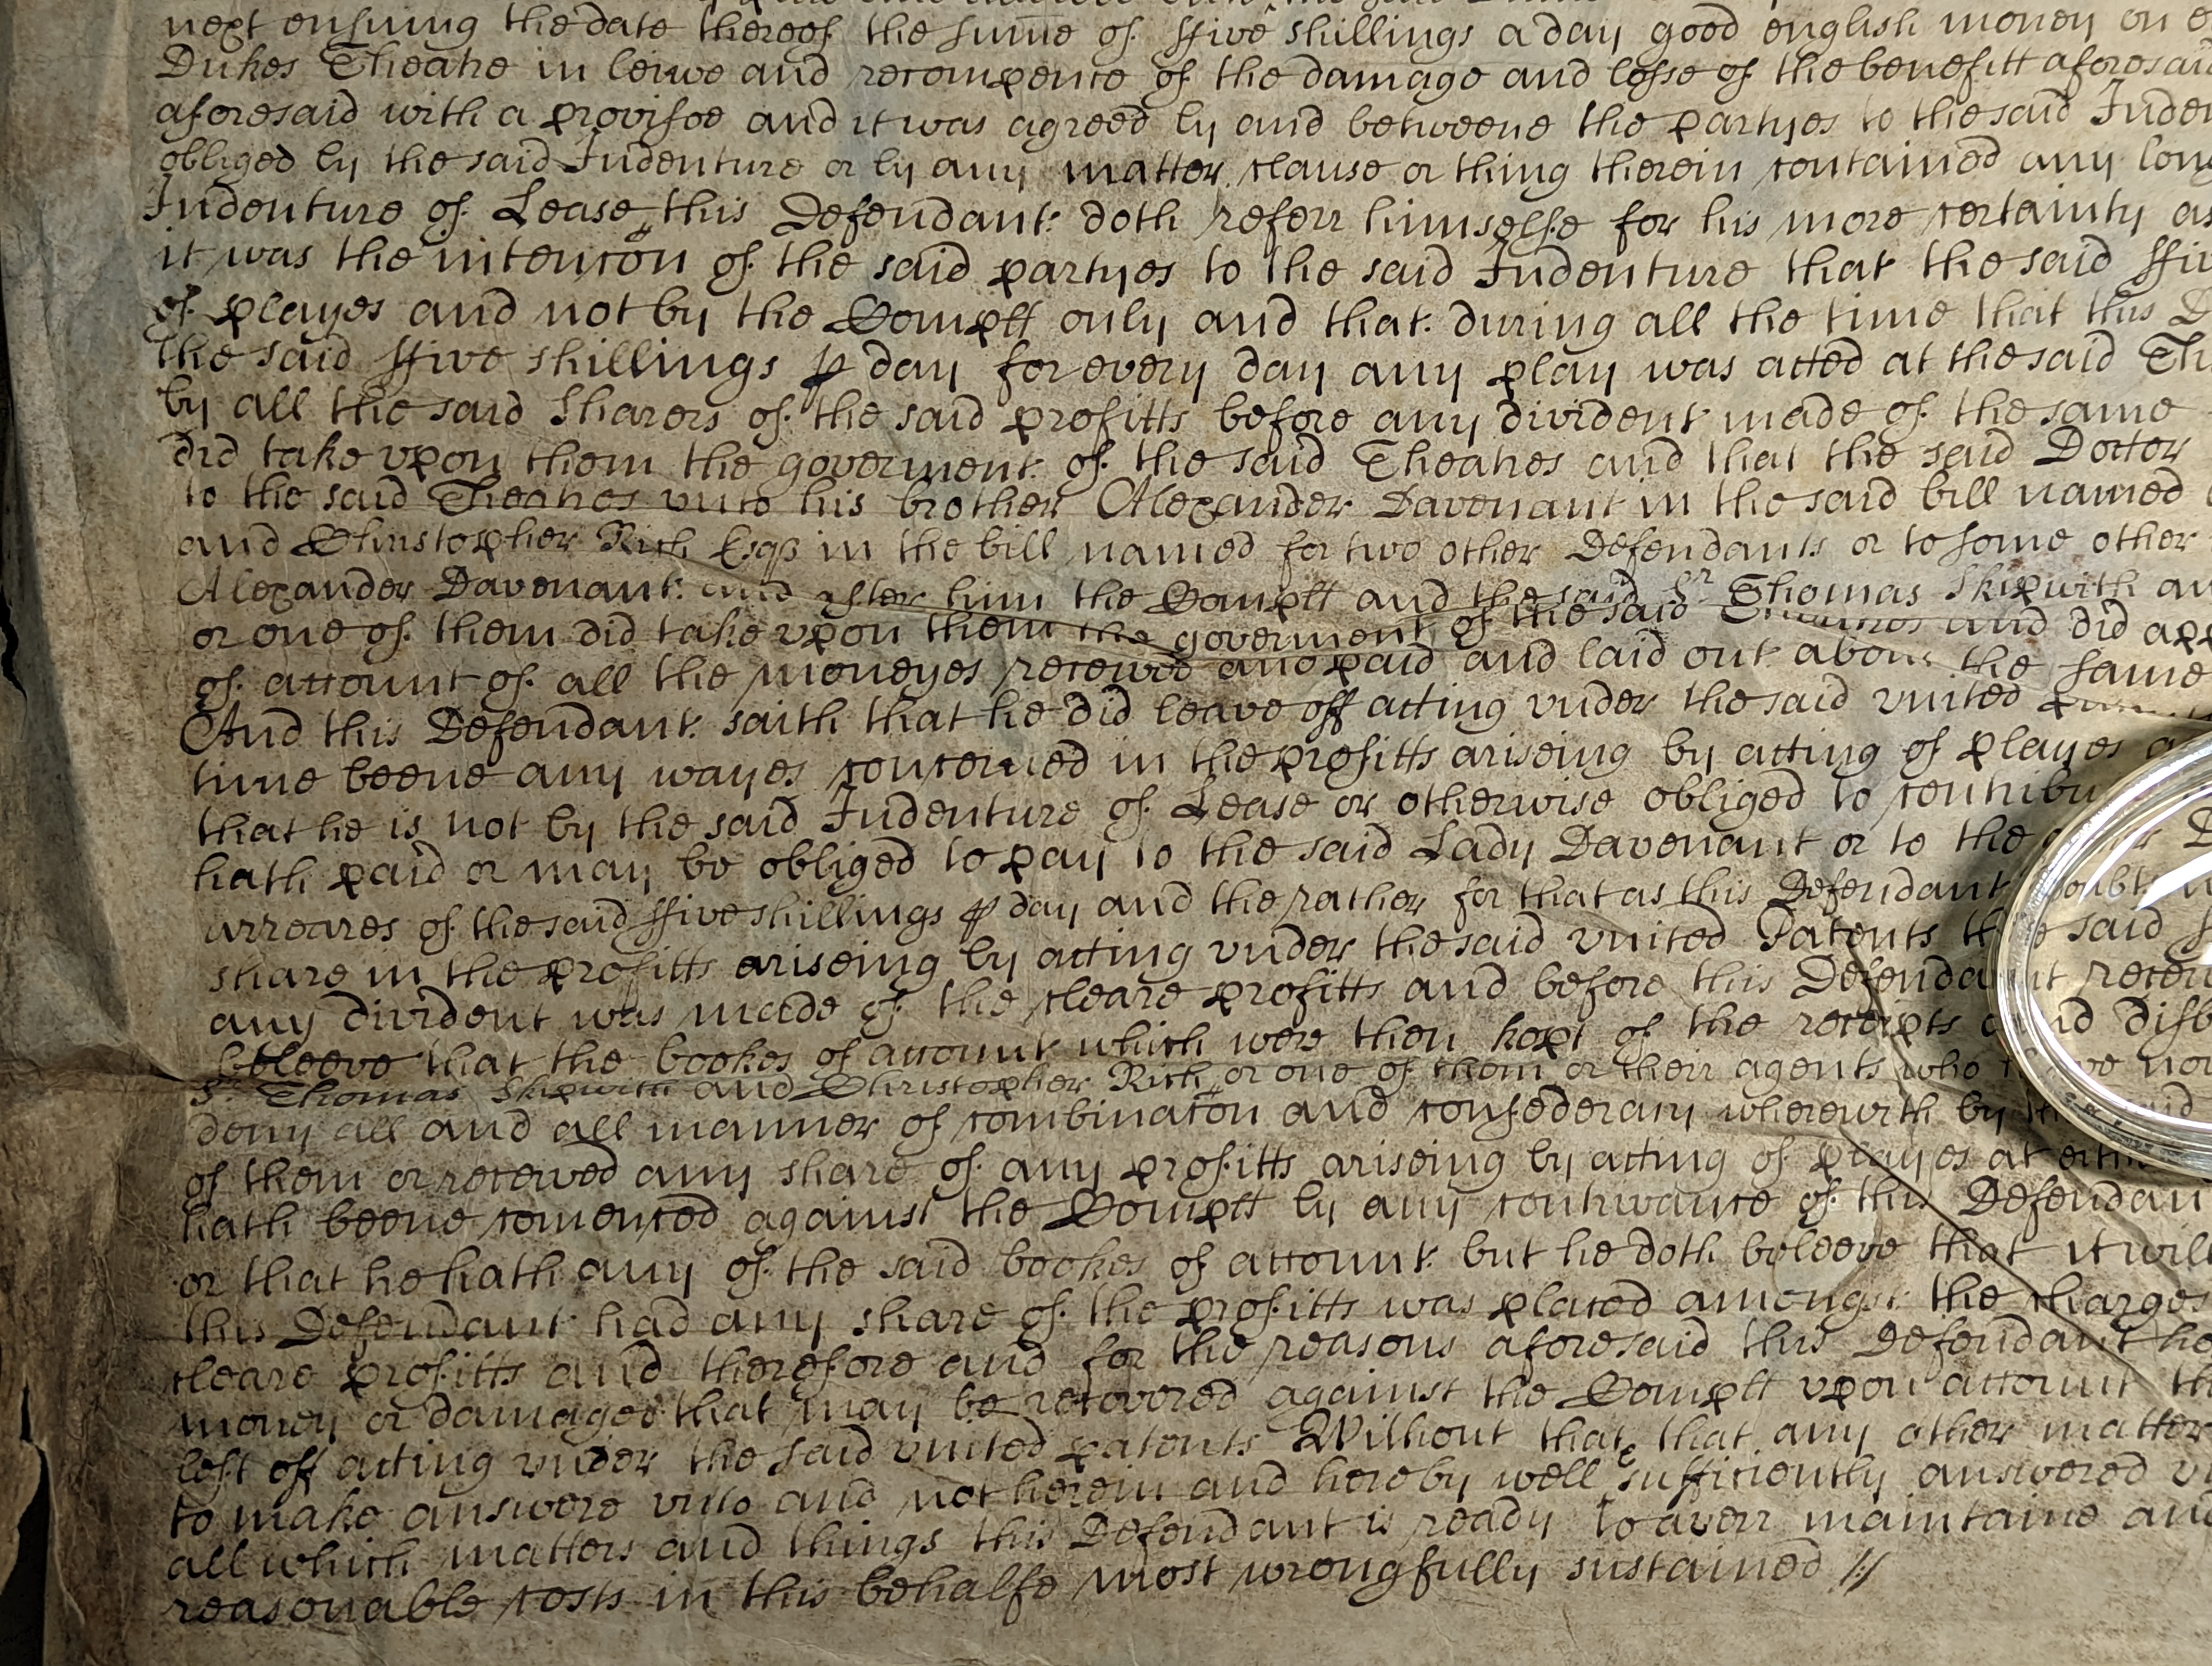 next ensuing the date thereof the sume of ffive shillings a day good english money on
Dukes Theatre in leiwe and recompence of the damage and losse of the benefitt aforesaid
aforesaid with a provisoe and it was agreed by and betweene the partyes to the said Inden
obliged by the said Indenture or by any matter clause or thing therein contained any long
Indenture of Lease this Defendant doth referr himselfe for his more certainty as
it was the intencõn of the said partyes to the said Indenture that the said ffiv
of playes and not by the Complt only and that during all the time that this D
the said ffive shillings p day for every day any play was acted at the said Th
by all the said Sharers of the said profitts before any divident made of the same
did take vpon them the goverment of the said Theatres and that the said Doctor
to the said Theatres vnto his brother Alexander Davenant in the said bill named
and Christopher Rich Esqs in the bill named for two other Defendants or to some other
Alexander Davenant and after him the Complt and the said Sr Thomas Skipwith an
or one of them did take vpon them the goverment of the said Theatres and did app
of account of all the moneyes received and paid and laid out about the same
And this Defendant saith that he did leave off acting vnder the said vnited
time beene any wayes concerned in the profitts ariseing by acting of playes
that he is not by the said Indenture of Lease or otherwise obliged to contribu
hath paid or may be obliged to pay to the said Lady Davenant or to the
arreares of the said ffive shillings p day and the rather for that as this Defendant doubts
share in the profitts ariseing by acting vnder the said vnited Patents the said
any divident was made of the cleare profitts and before this Defendant recei
beleeve that the bookes of account which were then kept of the receipts and disb
Sr Thomas Skipwith and Christopher Rich or one of them or their agents who have now
deny all and all manner of combinacõn and confederacy wherewith by the said
of them or received any share of any profitts ariseing by acting of playes at
hath beene comenced against the Complt by any contrivance of this Defendan
or that he hath any of the said bookes of account but he doth beleeve that it will
this Defendant had any share of the profitts was placed amongst the charges
cleare profitts and therefore and for the reasons aforesaid this Defendant ho
money or damages that may be recovered against the Complt vpon account th
left off acting vnder the said vnited patents Without that that any other matter
to make answere vnto and not herein and hereby well & sufficiently answered
all which matters and things this Defendant is ready to averr maintaine and
reasonable costs in this behalfe most wrongfully sustained //